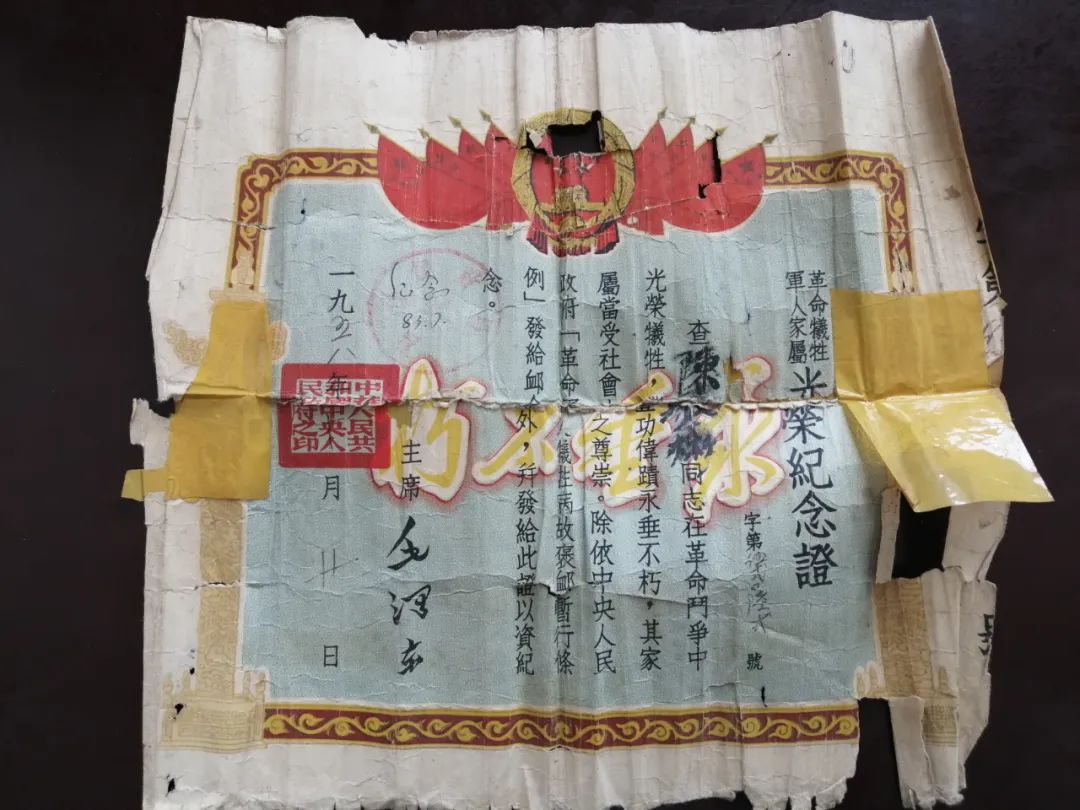 革命犧牲
軍人家屬
光榮紀念證
字第 號
查陳 同志在革命鬥爭中
光榮犧牲，豐功偉蹟永垂不朽，其家
屬當受社會上之尊崇。除依中央人民
政府「革命軍人犧牲病故褒卹暫行條
例」發給卹金外，幷發給此證以資紀
念。
主席 毛澤東
一九五八年 月 日
中華人民共
和國中央人
民政府之印
永垂不朽
83.7.